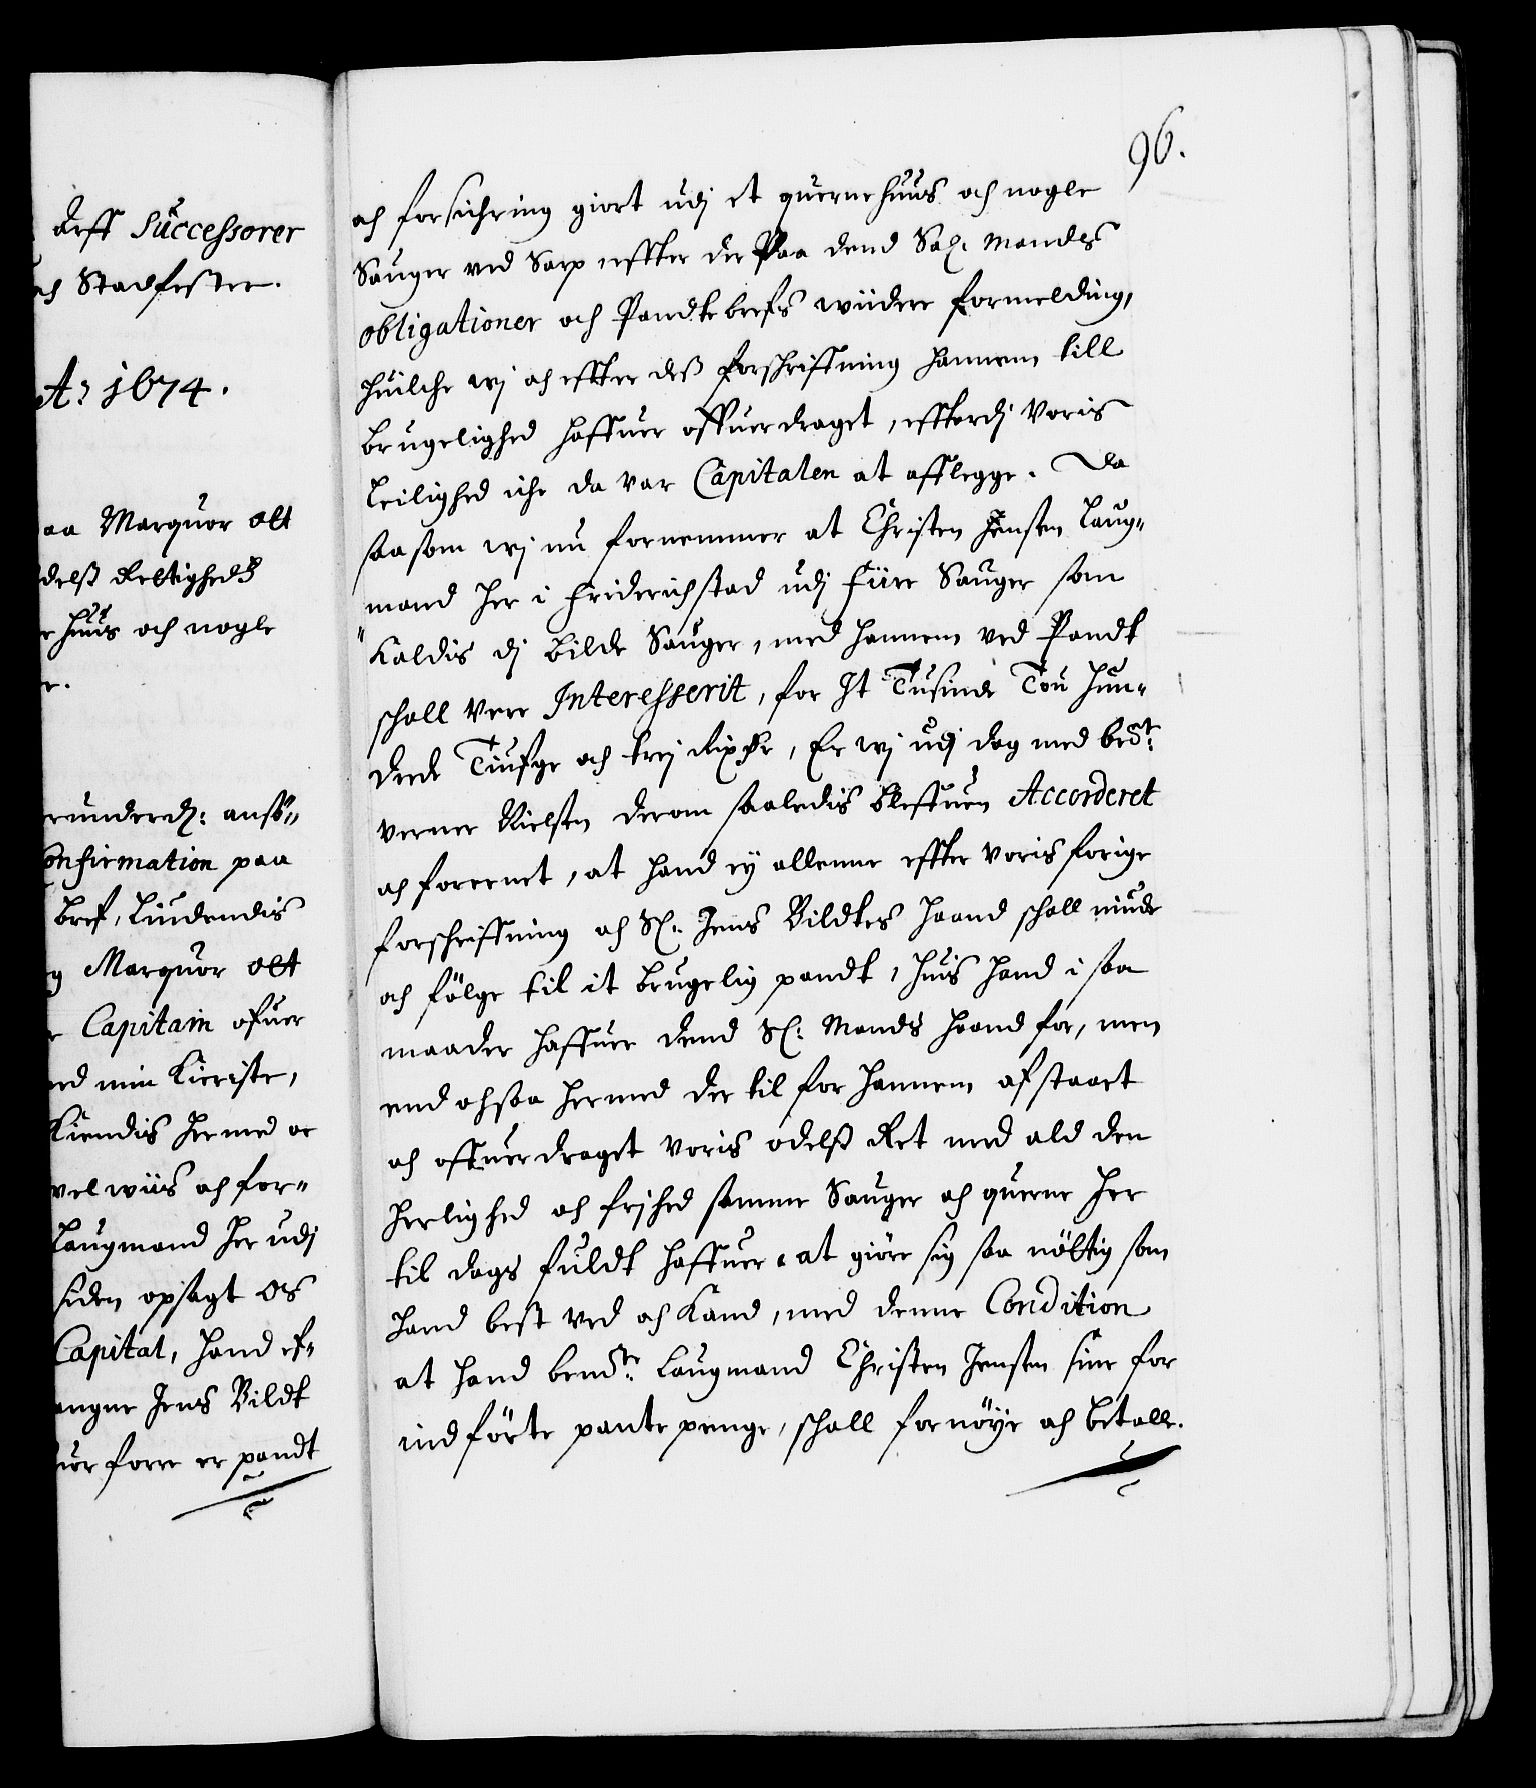 deſſ Successorer
ch Stadfester.
A: 1674.
aa Marquor Olt
delß Rettighedß
e huus och nogle
r.
erunderd: ansö„
onfirmation paa
Bref, Liudendis
g Marquor Olt
Capitain ofuer
ed min Kieriste,
Kiendis her med oc
vel wiis och for„
Laugmand her udj
siden opsagt Os
Capital, hand ef„
angne Jens Bildt
uer forre er pandt
96.
och forsichring giort udj et querne huus och nogle
Sauger ved Sarp effter der Paa dend Sal. Mandes
obligationer och Pandtebrefs wiidere formelding,
huilche wj och effter deß forschriffning hannem till
brugelighed haffuer offuerdraget, effterdj voris
Leilighed iche da var Capitalen at afflegge. Da
saasom wj nu fornemmer at Christen Jensen Laug„
mand her i Friderichstad udj fiire Sauger som
Kaldis dj Bilde Sauger, med hannem ved Pandt
schall were Interesserit, for It Tusinde Tou hun„
drede Tiufge och trej Rixdr, Er wj udj dag med bedt:
Verner Nielsen derom saaledis bleffuen Accorderet
och foreenet, at hand ey allenne effter voris forige
forschriffning och Sl: Jens Bildtes haand schall niude
och fölge til it brugelig pandt, huis hand i saa
maader haffuer dend Sl: Mands haand for, men
end ochsaa hermed der til for hannem afstaaet
och offuerdraget voris odelß Ret med ald den
herlighed och frihed samme Sauger och querne her
til dags fuldt haffuer at giöre sig saa nöttig som
hand best ved och Kand, med denne Condition
at hand bemdte: Laugmand Christen Jensen sine for
indförte pante penge, schall fornöye och betalle.